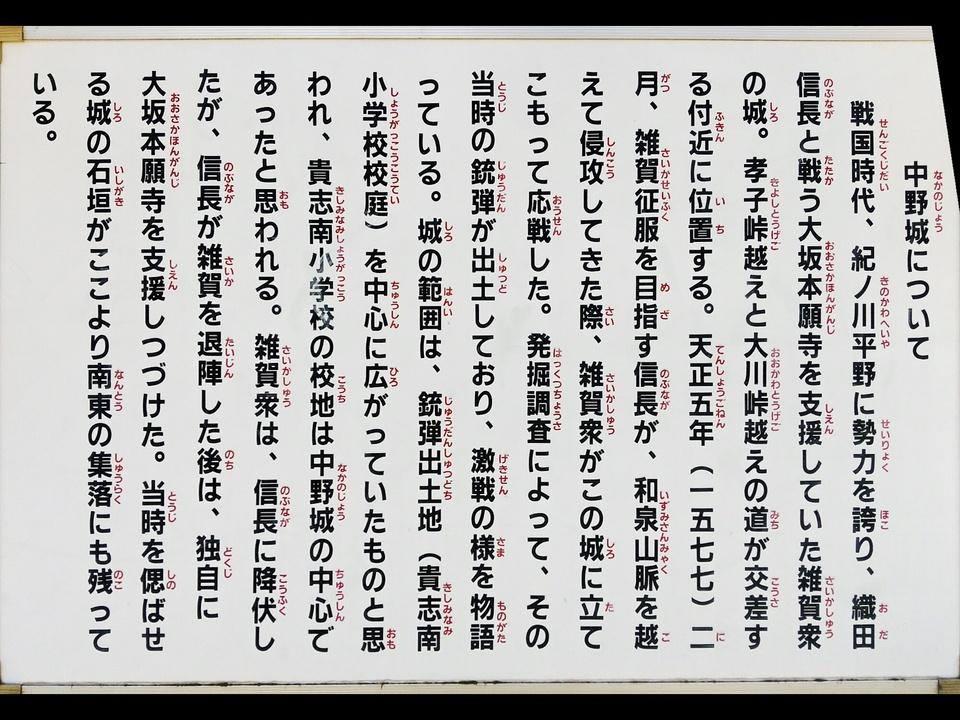 中野城について
戦国時代、紀ノ川平野に勢力を誇り、織田
信長と戦う大坂本願寺を支援していた雑賀衆
の城。孝子峠越えと大川峠越えの道が交差す
る付近に位置する。天正五年（一五七七）二
月、雑賀征服を目指す信長が、和泉山脈を越
えて侵攻してきた際、雑賀衆がこの城に立て
こもって応戦した。発掘調査によって、その
当時の銃弾が出土しており、激戦の様を物語
っている。城の範囲は、銃弾出土地（貴志南
小学校校庭）を中心に広がっていたものと思
われ、貴志南小学校の校地は中野城の中心で
あったと思われる。雑賀衆は、信長に降伏し
たが、信長が雑賀を退陣した後は、独自に
大坂本願寺を支援しつづけた。当時を偲ばせ
る城の石垣がここより南東の集落にも残って
いる。